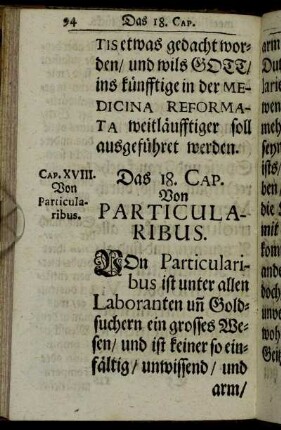 94 Das 18. CAP.
TIS etwas gedacht wor-
den/ und wils GOTT/
ins künfftige in der ME-
DICINA REFORMA-
TA weitläufftiger soll
ausgeführet werden.
CAP. XVIII.
Von
Particula-
ribus.
Das 18. CAP.
Von
PARTICULA-
RIBUS.
VOn Particulari-
bus ist unter allen
Laboranten uñ Gold-
suchern ein grosses We-
sen/ und ist keiner so ein-
fältig/ unwissend/ und
arm/
arm
Dut
larie
wen
meh
seyn
ists/
ben/
die
mit
kom
ande
doch
unve
woh
Geiz